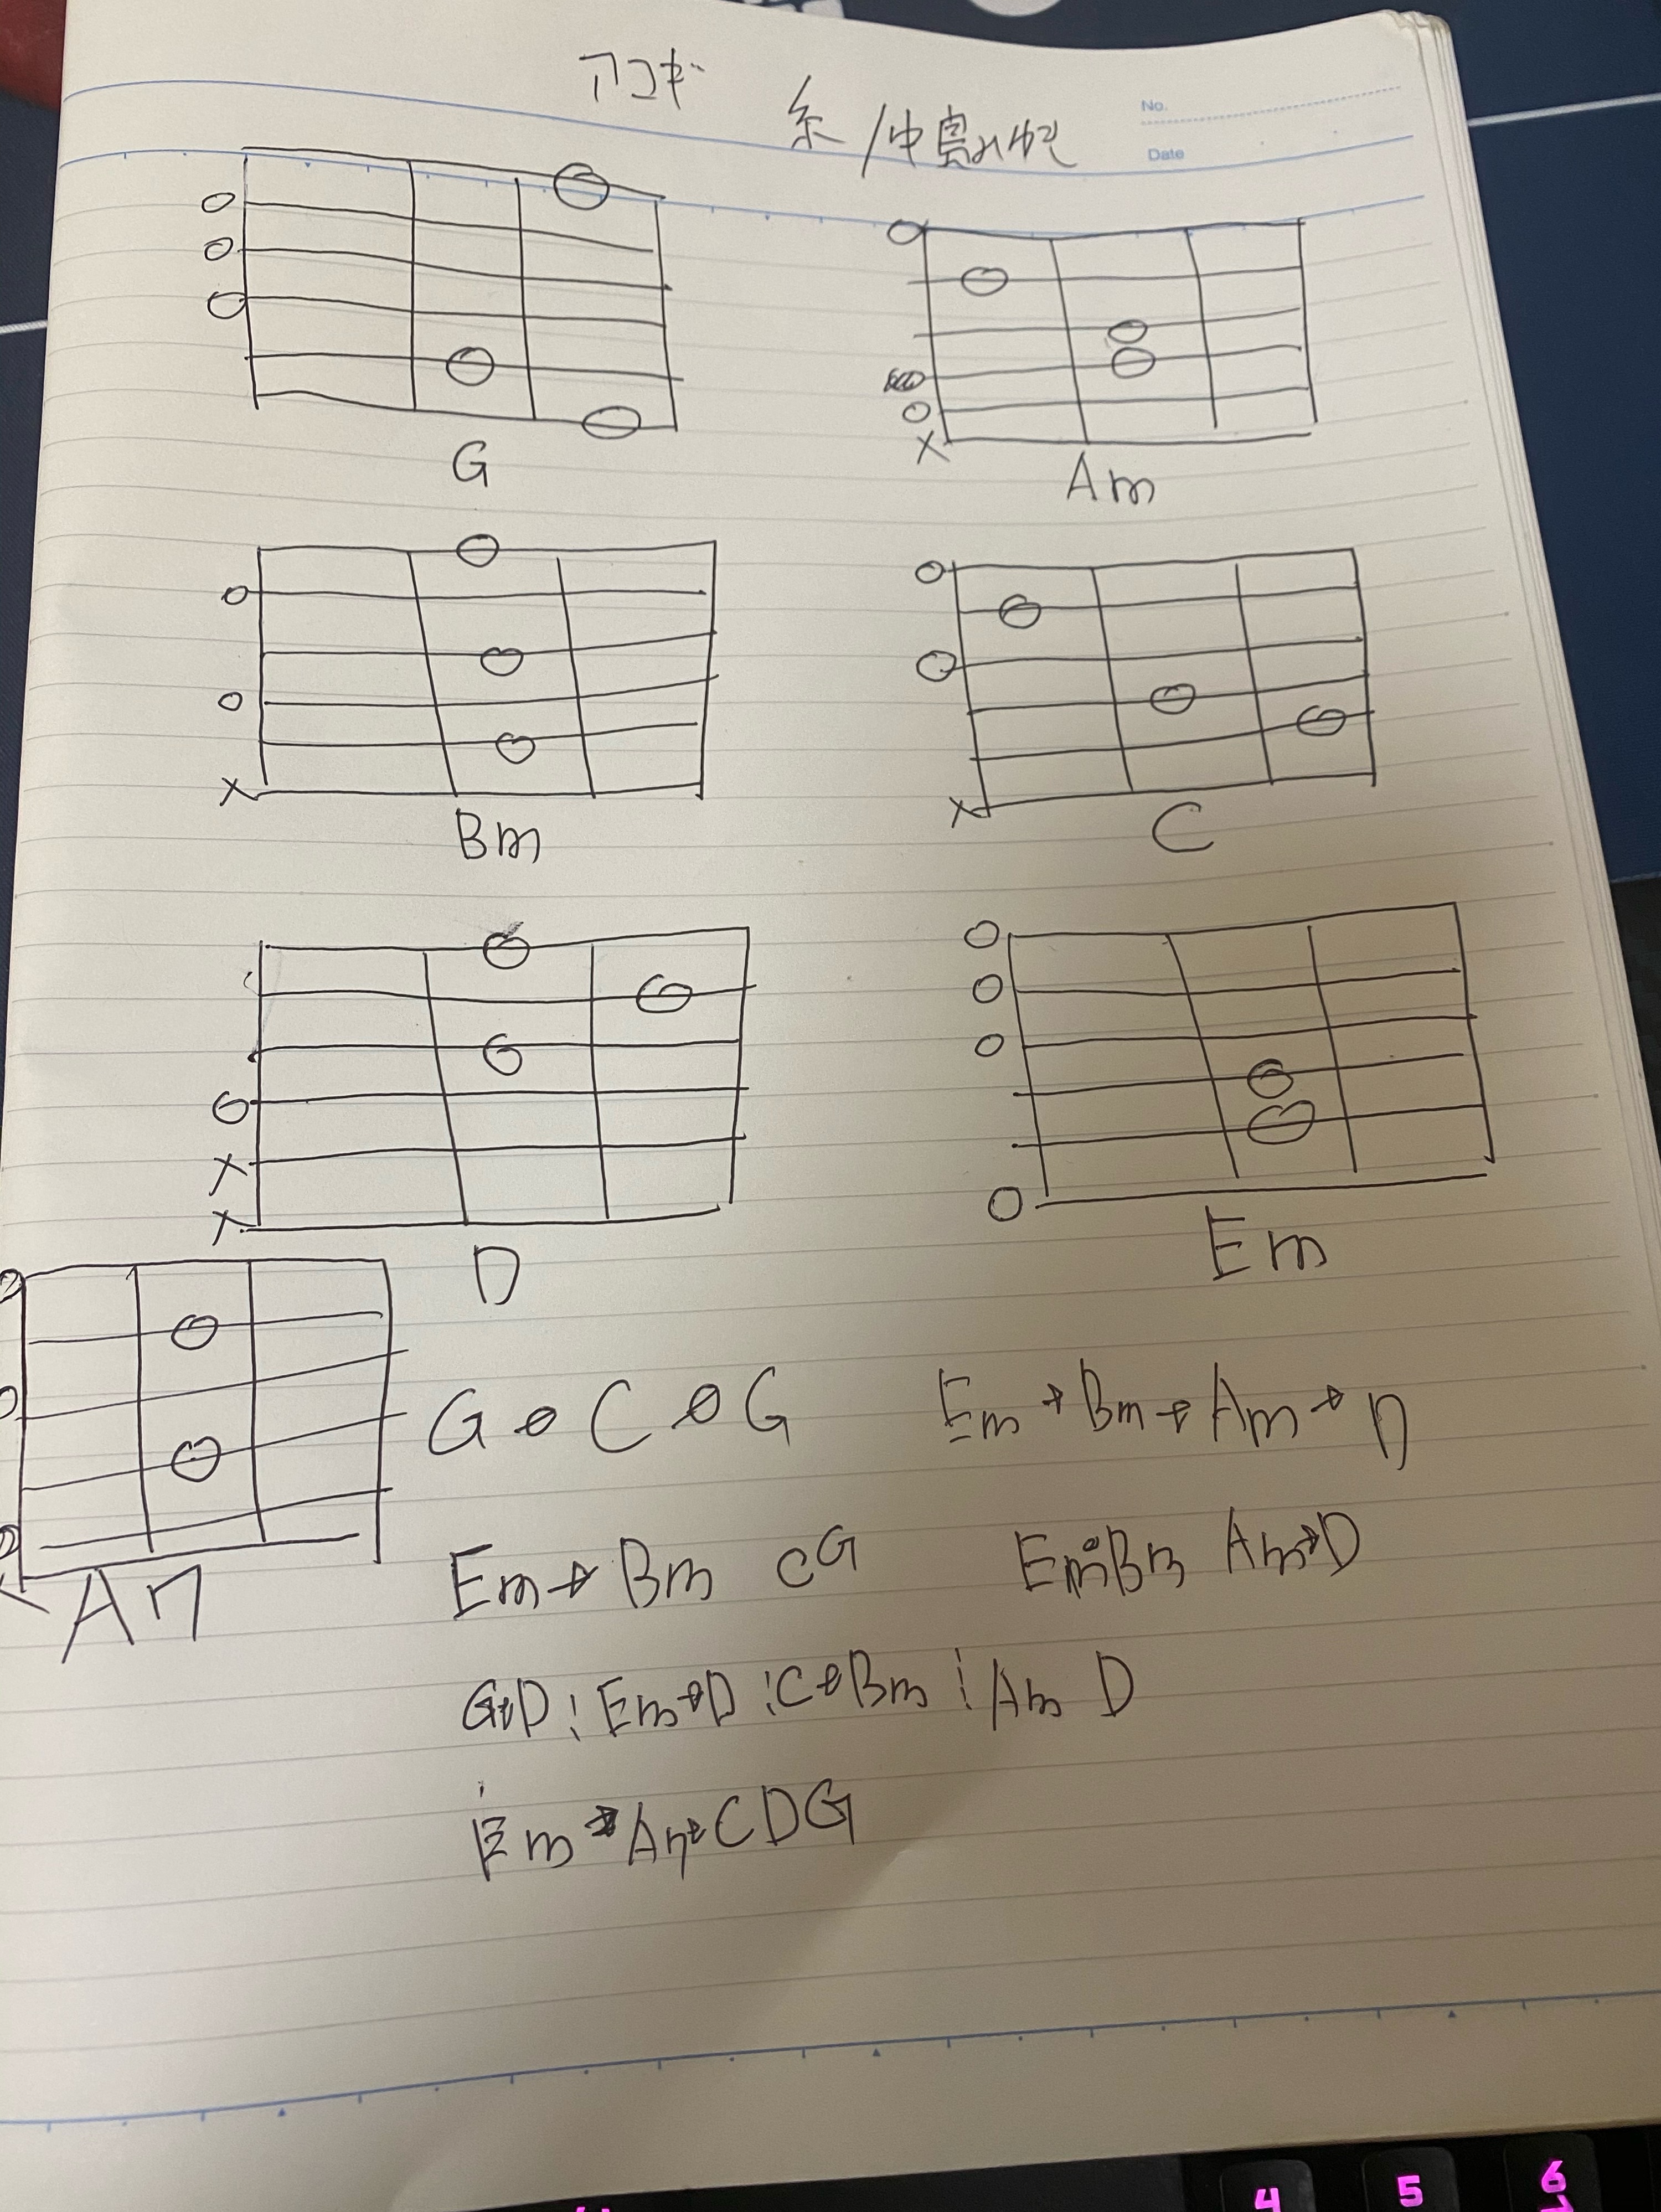 アコギ
糸/中島みゆき
No.
Date
G
Am
Bm
C
D
Em
A7
G→C→G Em→Bm→Am→D
Em→Bm CG Em→Bm Am→D
G→D¦Em→D¦C→Bm¦Am D
Em→A7→CDG
4 5 6